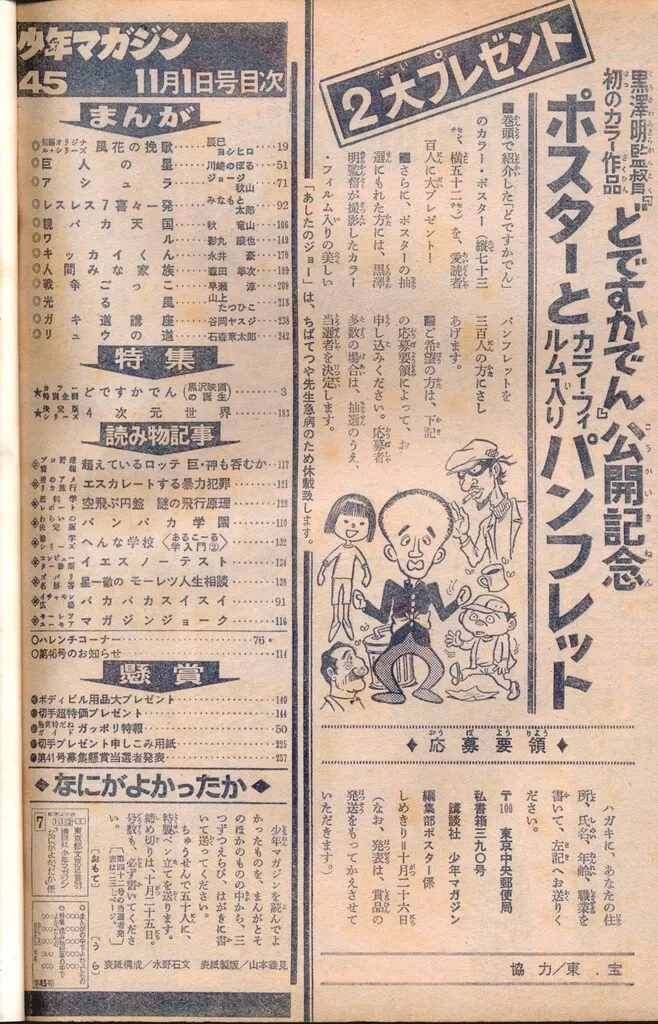 黒澤明監督
初のカラー作品
『どですかでん』公開記念
ポスターと
カラー・フィルム入り
パンフレット
2大プレゼント
■巻頭で紹介した「どですかでん」
のカラー・ポスター(縦七十三
センチ、横五十二センチ)を、愛読者
百人に大プレゼント!
■さらに、ポスターの抽
選にもれた方には、黒澤
明監督が撮影したカラー
・フィルム入りの美しい
パンフレットを
三百人の方にさし
あげます。
■ご希望の方は、下記
の応募要領によって、お
申し込みください。応募者
多数の場合は、抽選のうえ、
当選者を決定します。
「あしたのジョー」は、ちばてつや先生急病のため休載致します。
◆応募要領◆
ハガキに、あなたの住
所、氏名、年齢、職業を
書いて、左記へお送りく
ださい。
〒100 東京中央郵便局
私書箱三九〇号
講談社 少年マガジン
編集部ポスター係
しめきり=十月二十六日
(なお、発表は、賞品の
発送をもってかえさせて
いただきます。)
協力/東宝
少年マガジン
45 11月1日号目次
まんが
◎風花の挽歌……辰巳ヨシヒロ…19
◎巨人の星……川崎のぼる…51
◎アシュラ……ジョージ秋山…71
◎レスレス7喜々一発……みなもと太郎…92
◎親バカ天国……秋竜山…106
◎ワル……影丸譲也…149
◎キッカイくん……永井豪…170
◎人間みな家族……森田拳次…199
◎戦争ごっこ……早瀬淳…209
◎光る風……山上たつひこ…218
◎ガキ道講座……谷岡ヤスジ…238
◎リュウの道……石森章太郎…242
特集
★カラー特別企画 どですかでん(黒沢映画の誕生)……3
★決定版シリーズ 4次元世界……183
読み物記事
超えているロッテ 巨・神も呑むか…117
エスカレートする暴力犯罪……121
空飛ぶ円盤 謎の飛行原理……128
バンバカ学園……110
へんな学校〈あるこーる学入門②〉……132
コンピューター診断 イエスノーテスト……134
ズバリ名解答 星一徹のモーレツ人生相談……138
イチャモン広場 バカバカスイスイ……91
モーレツユーモア マガジンジョーク……116
○ハレンチコーナー……76
○第46号のお知らせ……114
懸賞
●ボディビル用品大プレゼント……140
●切手超特価プレゼント……144
●ガッポリ特報……50
●切手プレゼント申しこみ用紙……225
●第41号募集懸賞当選者発表……257
◆なにがよかったか◆
少年マガジンを読んでよ
かったものを、まんがとそ
のほかのものの中から、三
つずつえらび、はがきに書
いて送ってください。
ちゅうせんで五十人に、
特製ペン立てを送ります。
締め切りは十月二十五日。
号数も、必ず書いてくださ
い。
〔おもて〕
〔うら〕
表紙構成/水野石文 表紙製版/山本義見